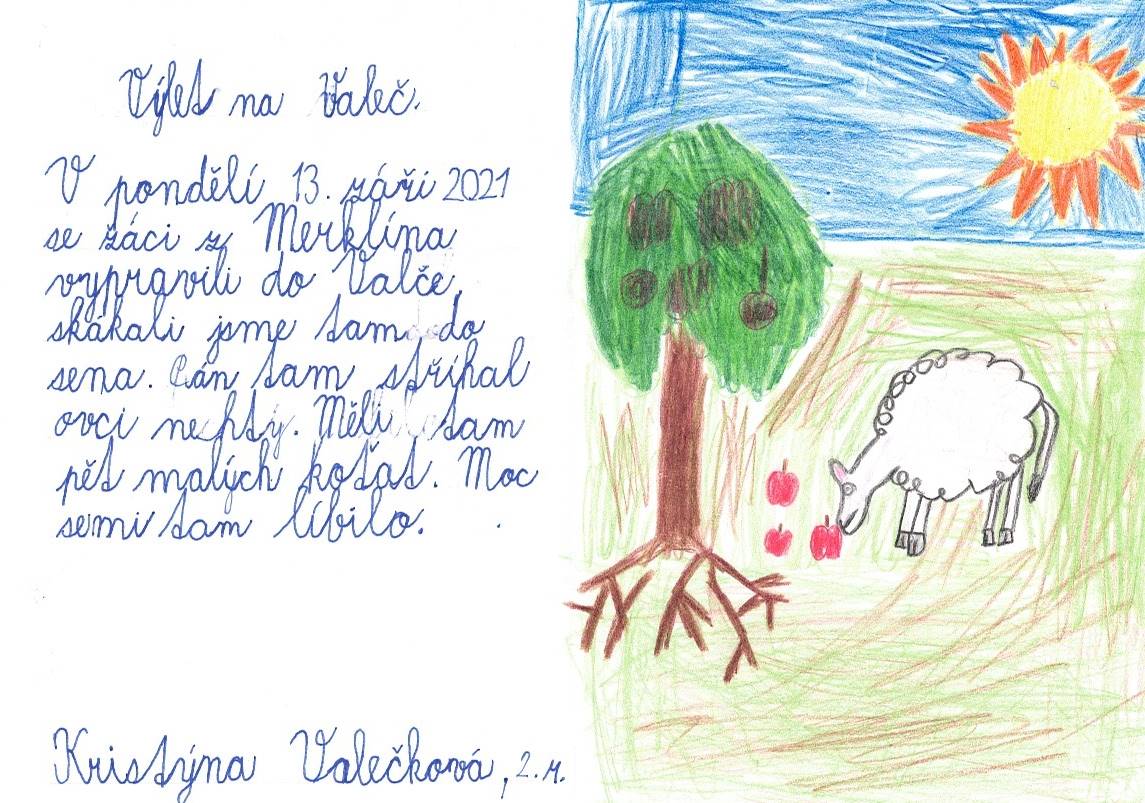 Výlet na Valeč.
V pondělí 13. září 2021
se žáci z Merklína
vypravili do Valče,
skákali jsme tam do
sena. Pán tam stříhal
ovci nechty. Měli tam
pět malých koťat. Moc
semi tam líbilo.
Kristýna Valečková, 2.r.